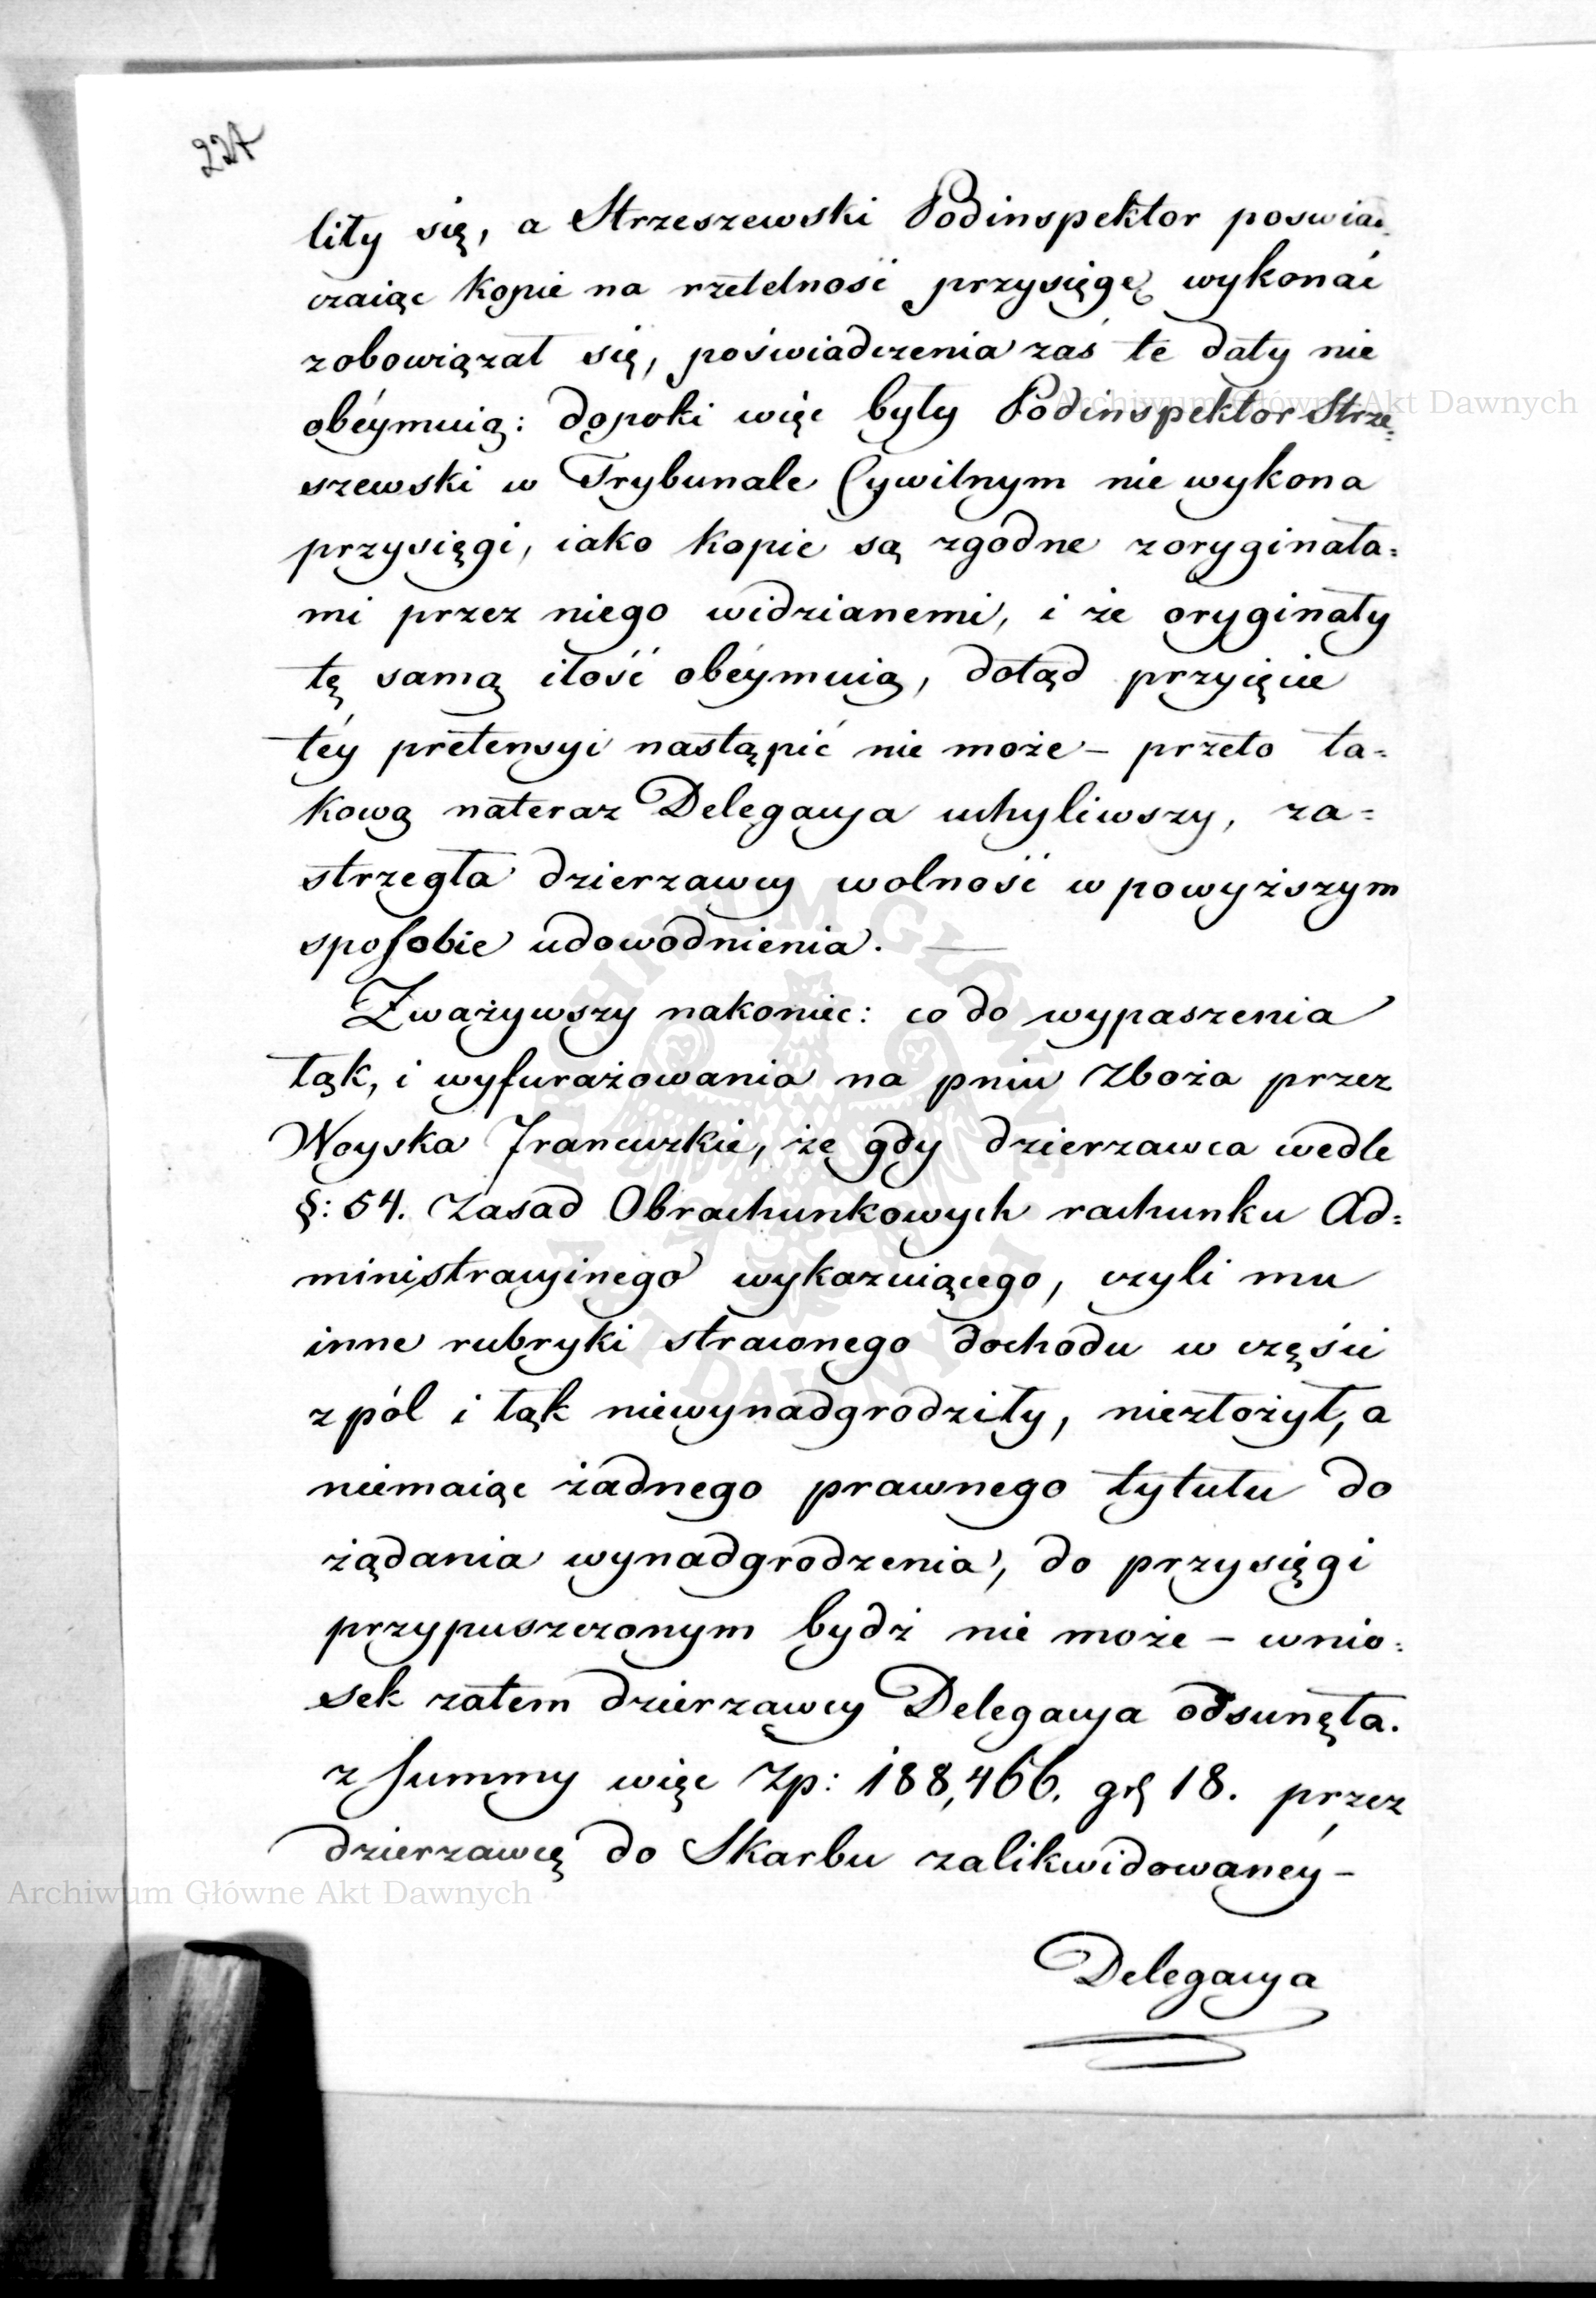 227
liły się, a Strzeszewski Podinspektor poswiad-
czaiąc kopie na rzetelność przysięgę wykonać
zobowiązał się, poświadczenia zaś te daty nie
obéymuią: dopoki więc były Podinspektor Strze=
szewski w Trybunale Cywilnym nie wykona
przysięgi, iako kopie są zgodne z oryginała=
mi przez niego widzianemi, i że oryginały
tę samą ilość obéymuią, dotąd przyięcie
téy pretensyi nastąpić nie może – przeto ta=
kową nateraz Delegacya uchyliwszy, za=
strzegła dzierzawcy wolność w powyższym
sposobie udowodnienia. —
Zważywszy nakoniec: co do wypaszenia
łąk, i wyfurażowania na pniu zboża przez
Woyska Francuzkie, że gdy dzierzawca wedle
§: 54. Zasad Obrachunkowych rachunku Ad=
ministracyinego wykazuiącego, czyli mu
inne rubryki straconego dochodu w części
z pól i łąk niewynadgrodziły, niezłożył, a
niemaiąc żadnego prawnego tytułu do
żądania wynadgrodzenia, do przysięgi
przypuszczonym bydź nie może – wnio=
sek zatem dzierzawcy Delegacya odsunęła.
z Summy więc Zp: 188,466. gr 18. przez
dzierzawcę do Skarbu zalikwidowanéy –
Delegacya
Archiwum Główne Akt Dawnych
Archiwum Główne Akt Dawnych
ARCHIWUM GŁÓWNE AKT DAWNYCH